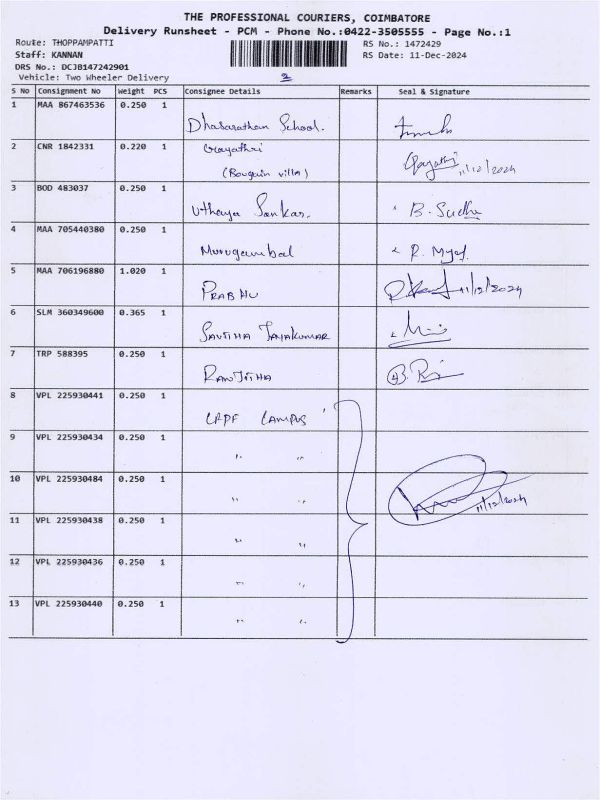 THE PROFESSIONAL COURIERS, COIMBATORE
Delivery Runsheet - PCM - Phone No.:0422-3505555 - Page No.:1
Route: THOPPAMPATTI RS No.: 1472429
Staff: KANNAN RS Date: 11-Dec-2024
DRS No.: DCJB147242901
Vehicle: Two Wheeler Delivery 2
S No Consignment No Weight PCS Consignee Details Remarks Seal & Signature
1 MAA 867463536 0.250 1 Dhasarathan School.
2 CNR 1842331 0.220 1 Gayathri Gayathri 11/12/2024
(Bougain villa)
3 BOD 483037 0.250 1 Uthaya Sankar. B. Sudha
4 MAA 705440380 0.250 1 Murugambal
5 MAA 706196880 1.020 1 PRABHU 11/12/2024
6 SLM 360349600 0.365 1 SAVITHA JAYAKUMAR
7 TRP 588395 0.250 1 RANJITHA
8 VPL 225930441 0.250 1 CRPF CAMPUS
9 VPL 225930434 0.250 1 " "
10 VPL 225930484 0.250 1 " " 11/12/2024
11 VPL 225930438 0.250 1 " "
12 VPL 225930436 0.250 1 " "
13 VPL 225930440 0.250 1 " "